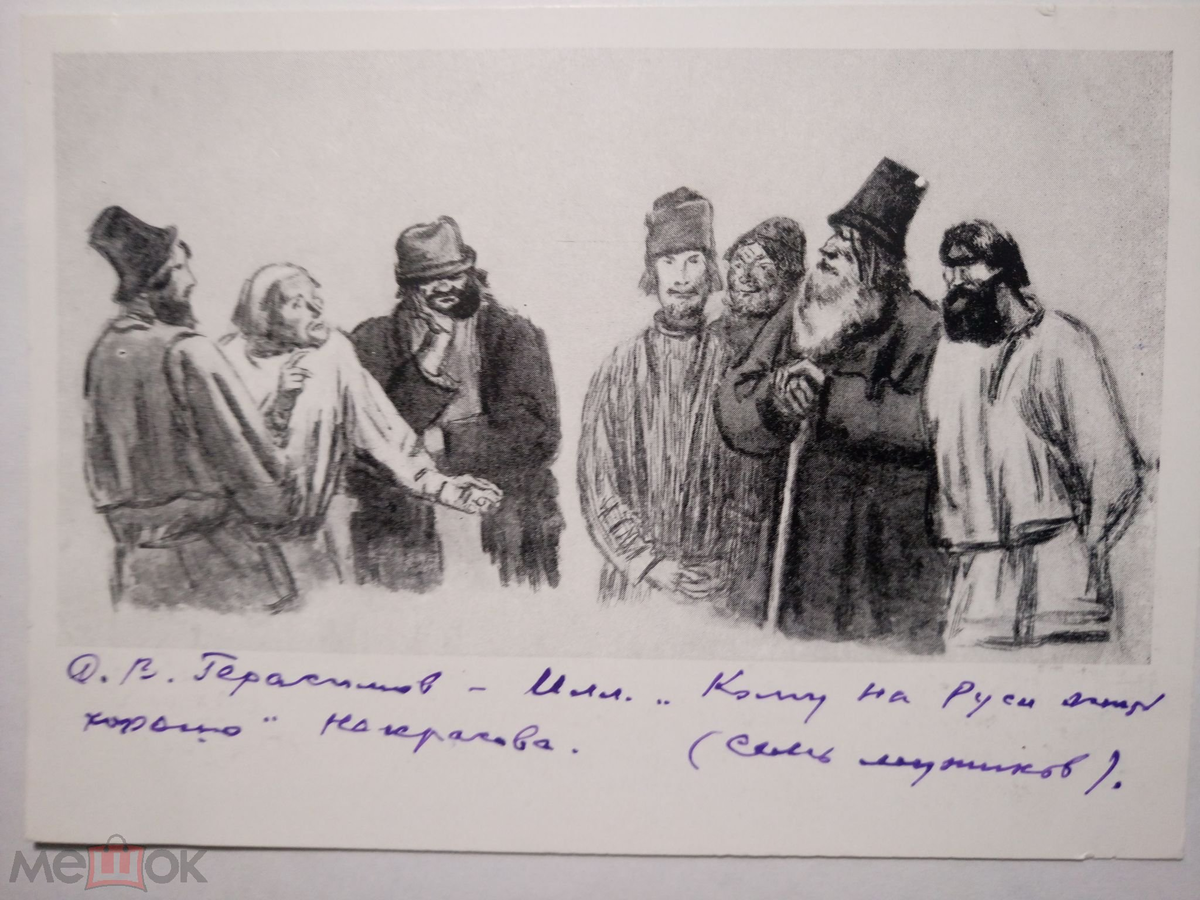 Д. В. Герасимов - Илл. „Кому на Руси жить
хорошо" Некрасова. (Семь мужиков).
мешок